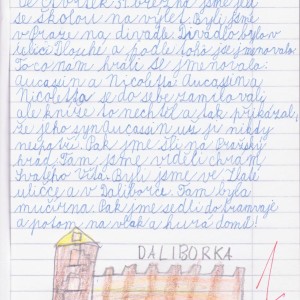 Ve čtvrtek 31. března jsme jeli
se školou na výlet. Byli jsme
v Praze na divadle. Divadlo bylo v
ulici Dlouhé a podle toho se jmenovalo.
To co nám hráli se jmenovalo:
Aucassin a Nicoletta. Aucassin a
Nicoletta se do sebe zamilovali
ale kníže to nechtěl a tak přikázal,
že jeho syn Aucassin už ji nikdy
nespatří. Pak jme šli na Pražský
hrad. Tam jsme viděli chrám
Svatého Víta. Byli jsme ve Zlaté
uličce a v Daliborce. Tam byla
mučírna. Pak jme sedli do tramvaje
a potom na vlak a hurá domů!
DALIBORKA
1